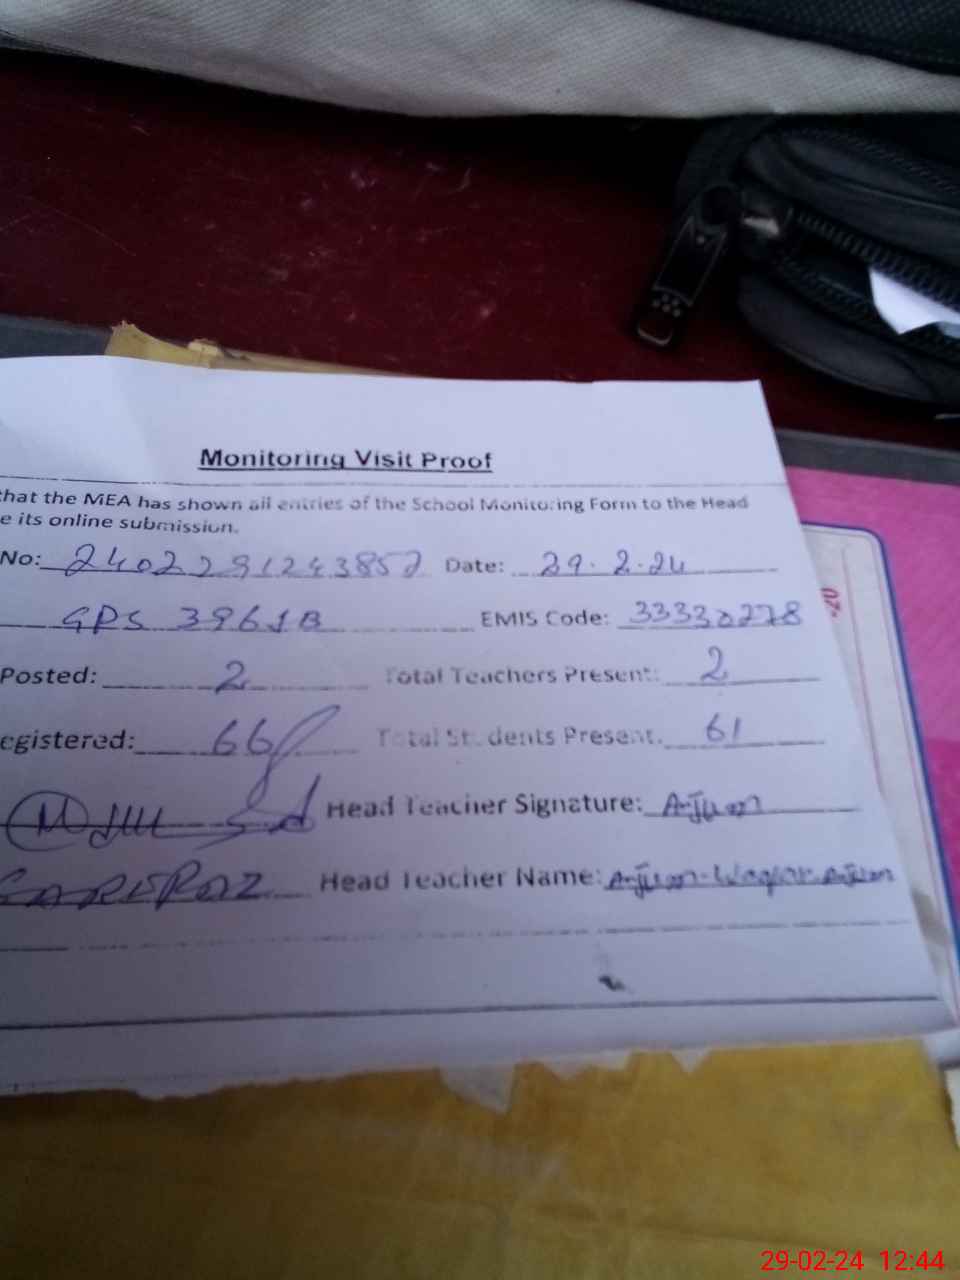 Monitoring Visit Proof
that the MEA has shown all entries of the School Monitoring Form to the Head
e its online submission.
No: 2402291243852 Date: 29.2.24
GPS 3961B EMIS Code: 33330278
Posted: 2 Total Teachers Present: 2
egistered: 66 Total Students Present: 61
Head Teacher Signature: Anjum
Head Teacher Name: Anjum Waqar Anjum
29-02-24 12:44